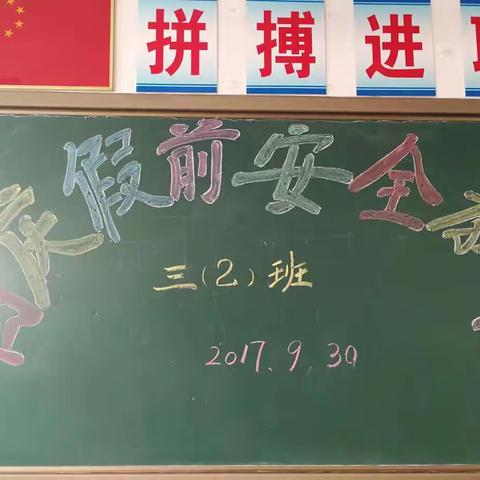 拼搏进
假前安全
三(2)班
2017.9.30